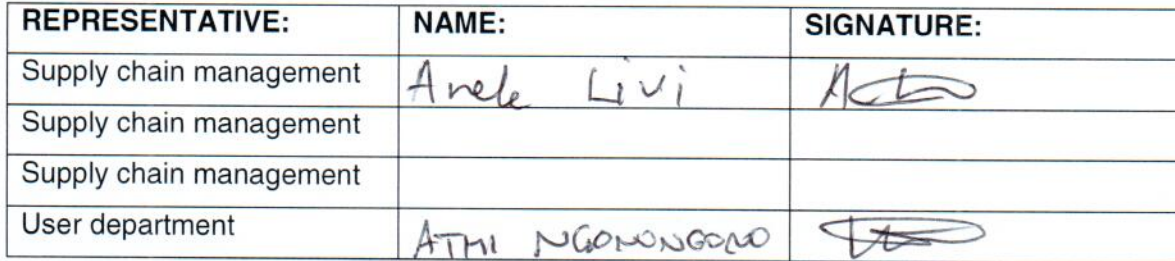 REPRESENTATIVE: NAME: SIGNATURE:
Supply chain management Anele Livi
Supply chain management
Supply chain management
User department ATHI NGONONGONO